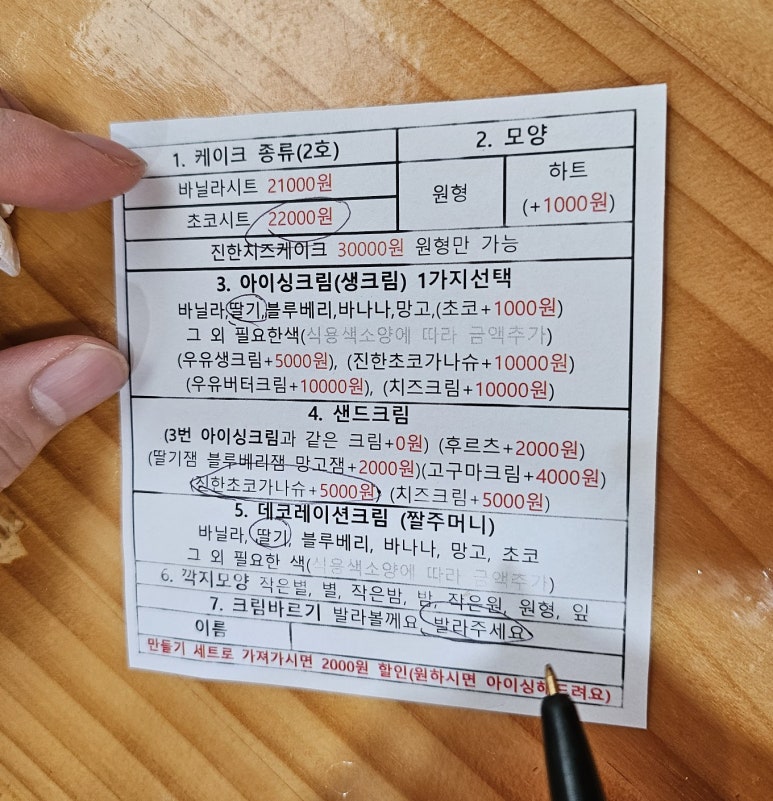 1. 케이크 종류(2호)
2. 모양
바닐라시트 21000원
초코시트 22000원
원형
하트
(+1000원)
진한치즈케이크 30000원 원형만 가능
3. 아이싱크림(생크림) 1가지선택
바닐라,딸기,블루베리,바나나,망고,(초코+1000원)
그 외 필요한색(식용색소양에 따라 금액추가)
(우유생크림+5000원), (진한초코가나슈+10000원)
(우유버터크림+10000원), (치즈크림+10000원)
4. 샌드크림
(3번 아이싱크림과 같은 크림+0원) (후르츠+2000원)
(딸기잼 블루베리잼 망고잼+2000원)(고구마크림+4000원)
(진한초코가나슈+5000원) (치즈크림+5000원)
5. 데코레이션크림 (짤주머니)
바닐라, 딸기, 블루베리, 바나나, 망고, 초코
그 외 필요한 색(식용색소양에 따라 금액추가)
6. 깍지모양 작은별, 별, 작은밤, 밤, 작은원, 원형, 잎
7. 크림바르기 발라볼께요, 발라주세요
이름
만들기 세트로 가져가시면 2000원 할인(원하시면 아이싱해드려요)